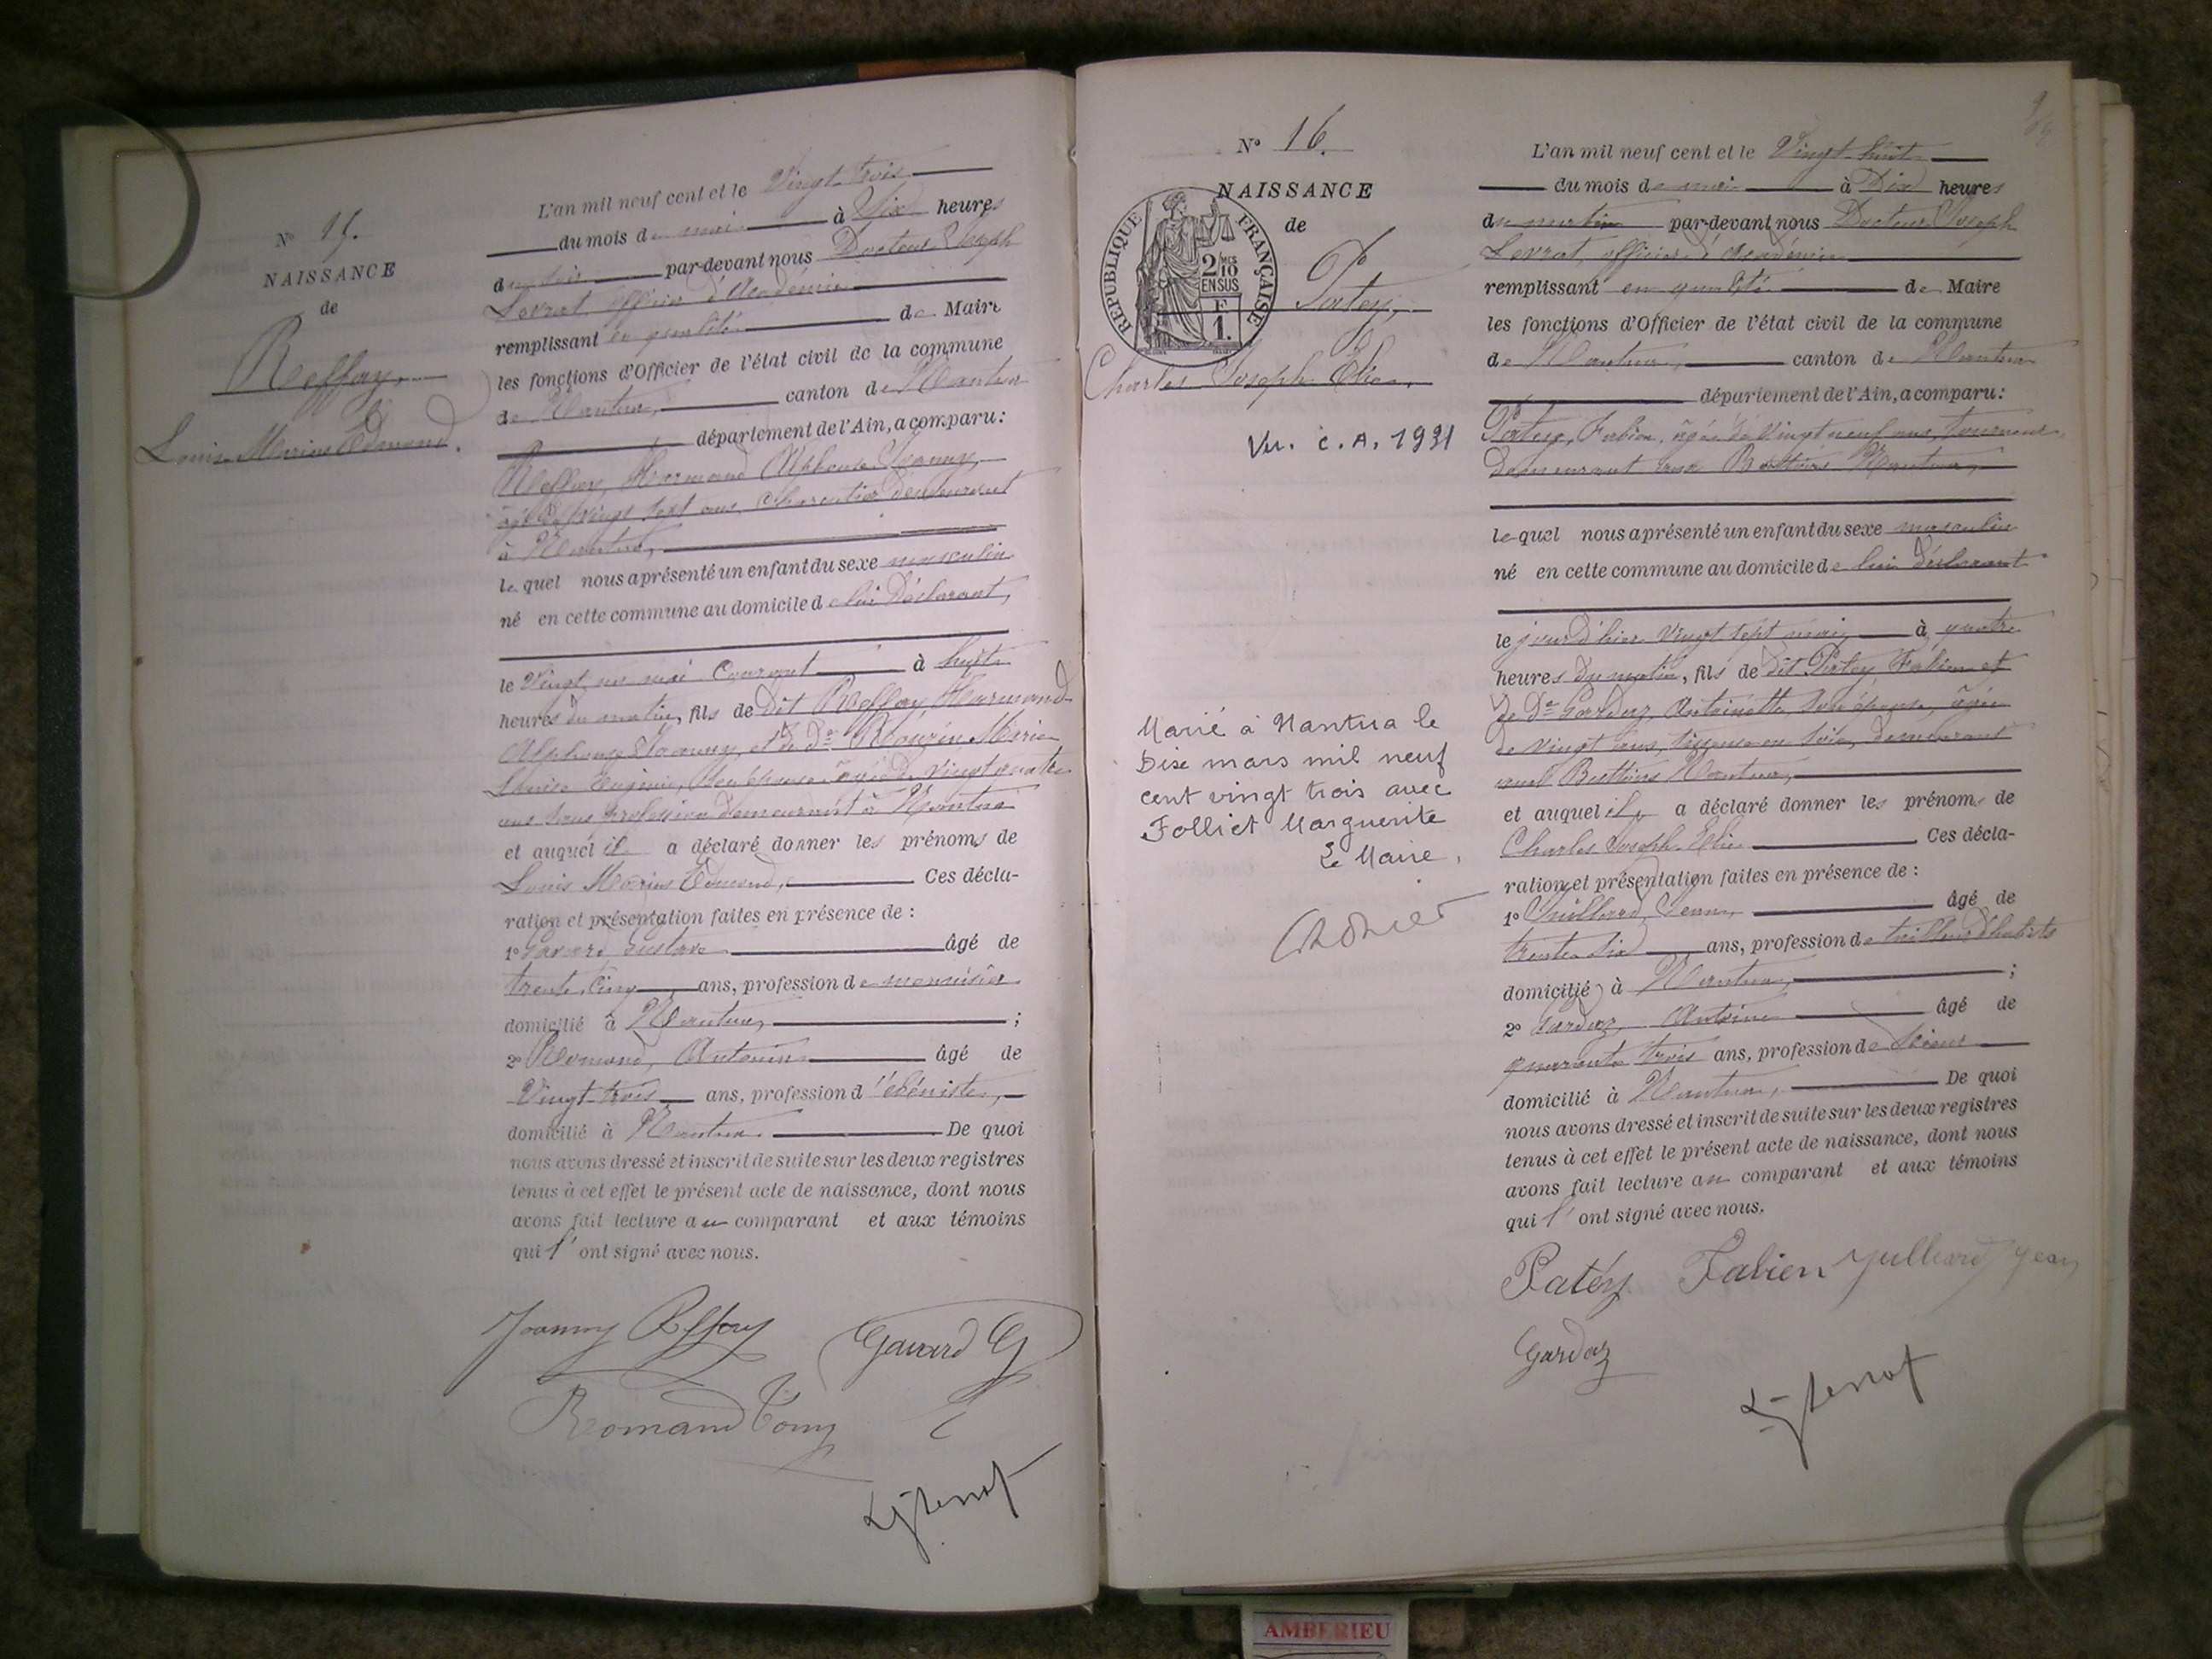 N° 15.
NAISSANCE
de
Reffay
Louis Marius Edmond.
L'an mil neuf cent et le Vingt trois
du mois de mai à Six heures
du soir par-devant nous Docteur Joseph
Levrat, officier d'Académie
remplissant en qualité de Maire
les fonctions d'Officier de l'état civil de la commune
de Nantua, canton de Nantua
département de l'Ain, a comparu:
Reffay, Alphonse Joanny,
âgé de vingt sept ans, demeurant
à Nantua,
lequel nous a présenté un enfant du sexe masculin
né en cette commune au domicile de lui Déclarant,
le Vingt un mai Courant à huit
heures du matin, fils de dit Reffay
Alphonse Joanny, et de De
Louise Eugénie, son épouse âgée de vingt quatre
ans sans profession demeurant à Nantua
et auquel il a déclaré donner les prénoms de
Louis Marius Edmond, Ces décla-
ration et présentation faites en présence de :
1° Gavard, Gustave âgé de
trente cinq ans, profession de menuisier
domicilié à Nantua, ;
2° Romand, Antonin âgé de
Vingt trois ans, profession d'ébéniste,
domicilié à Nantua De quoi
nous avons dressé et inscrit de suite sur les deux registres
tenus à cet effet le présent acte de naissance, dont nous
avons fait lecture au comparant et aux témoins
qui l'ont signé avec nous.
Joanny Reffay Gavard G
Romand Tony
N° 16.
NAISSANCE
de
RÉPUBLIQUE FRANÇAISE
2/10 MES
EN SUS
F
1.
Patey,
Charles Joseph Élie.
Vu. C.A. 1931
Marié à Nantua le
Dix mars mil neuf
cent vingt trois avec
Folliet Marguerite
Le Maire,
L'an mil neuf cent et le Vingt huit
du mois de mai à Dix heures
du matin par-devant nous Docteur Joseph
Levrat, officier d'Académie
remplissant en qualité de Maire
les fonctions d'Officier de l'état civil de la commune
de Nantua, canton de Nantua
département de l'Ain, a comparu:
Patey, Fabien, âgé de Vingt neuf ans, tourneur,
demeurant Nantua,
lequel nous a présenté un enfant du sexe masculin
né en cette commune au domicile de lui déclarant
le jour d'hier Vingt sept mai, à quatre
heures du matin, fils de dit Patey Fabien et
de De Gardaz, Antoinette, son épouse, âgée
de vingt ans, tisseuse en soie, demeurant
Nantua,
et auquel il a déclaré donner les prénoms de
Charles Joseph Élie Ces décla-
ration et présentation faites en présence de :
1° Juilliard, Jean, âgé de
trente six ans, profession de tailleur d'habits
domicilié à Nantua, ;
2° Gardaz, Antoine âgé de
quarante trois ans, profession de
domicilié à Nantua, De quoi
nous avons dressé et inscrit de suite sur les deux registres
tenus à cet effet le présent acte de naissance, dont nous
avons fait lecture au comparant et aux témoins
qui l'ont signé avec nous.
Patéy Fabien Julliard Jean
Gardaz
AMBERIEU